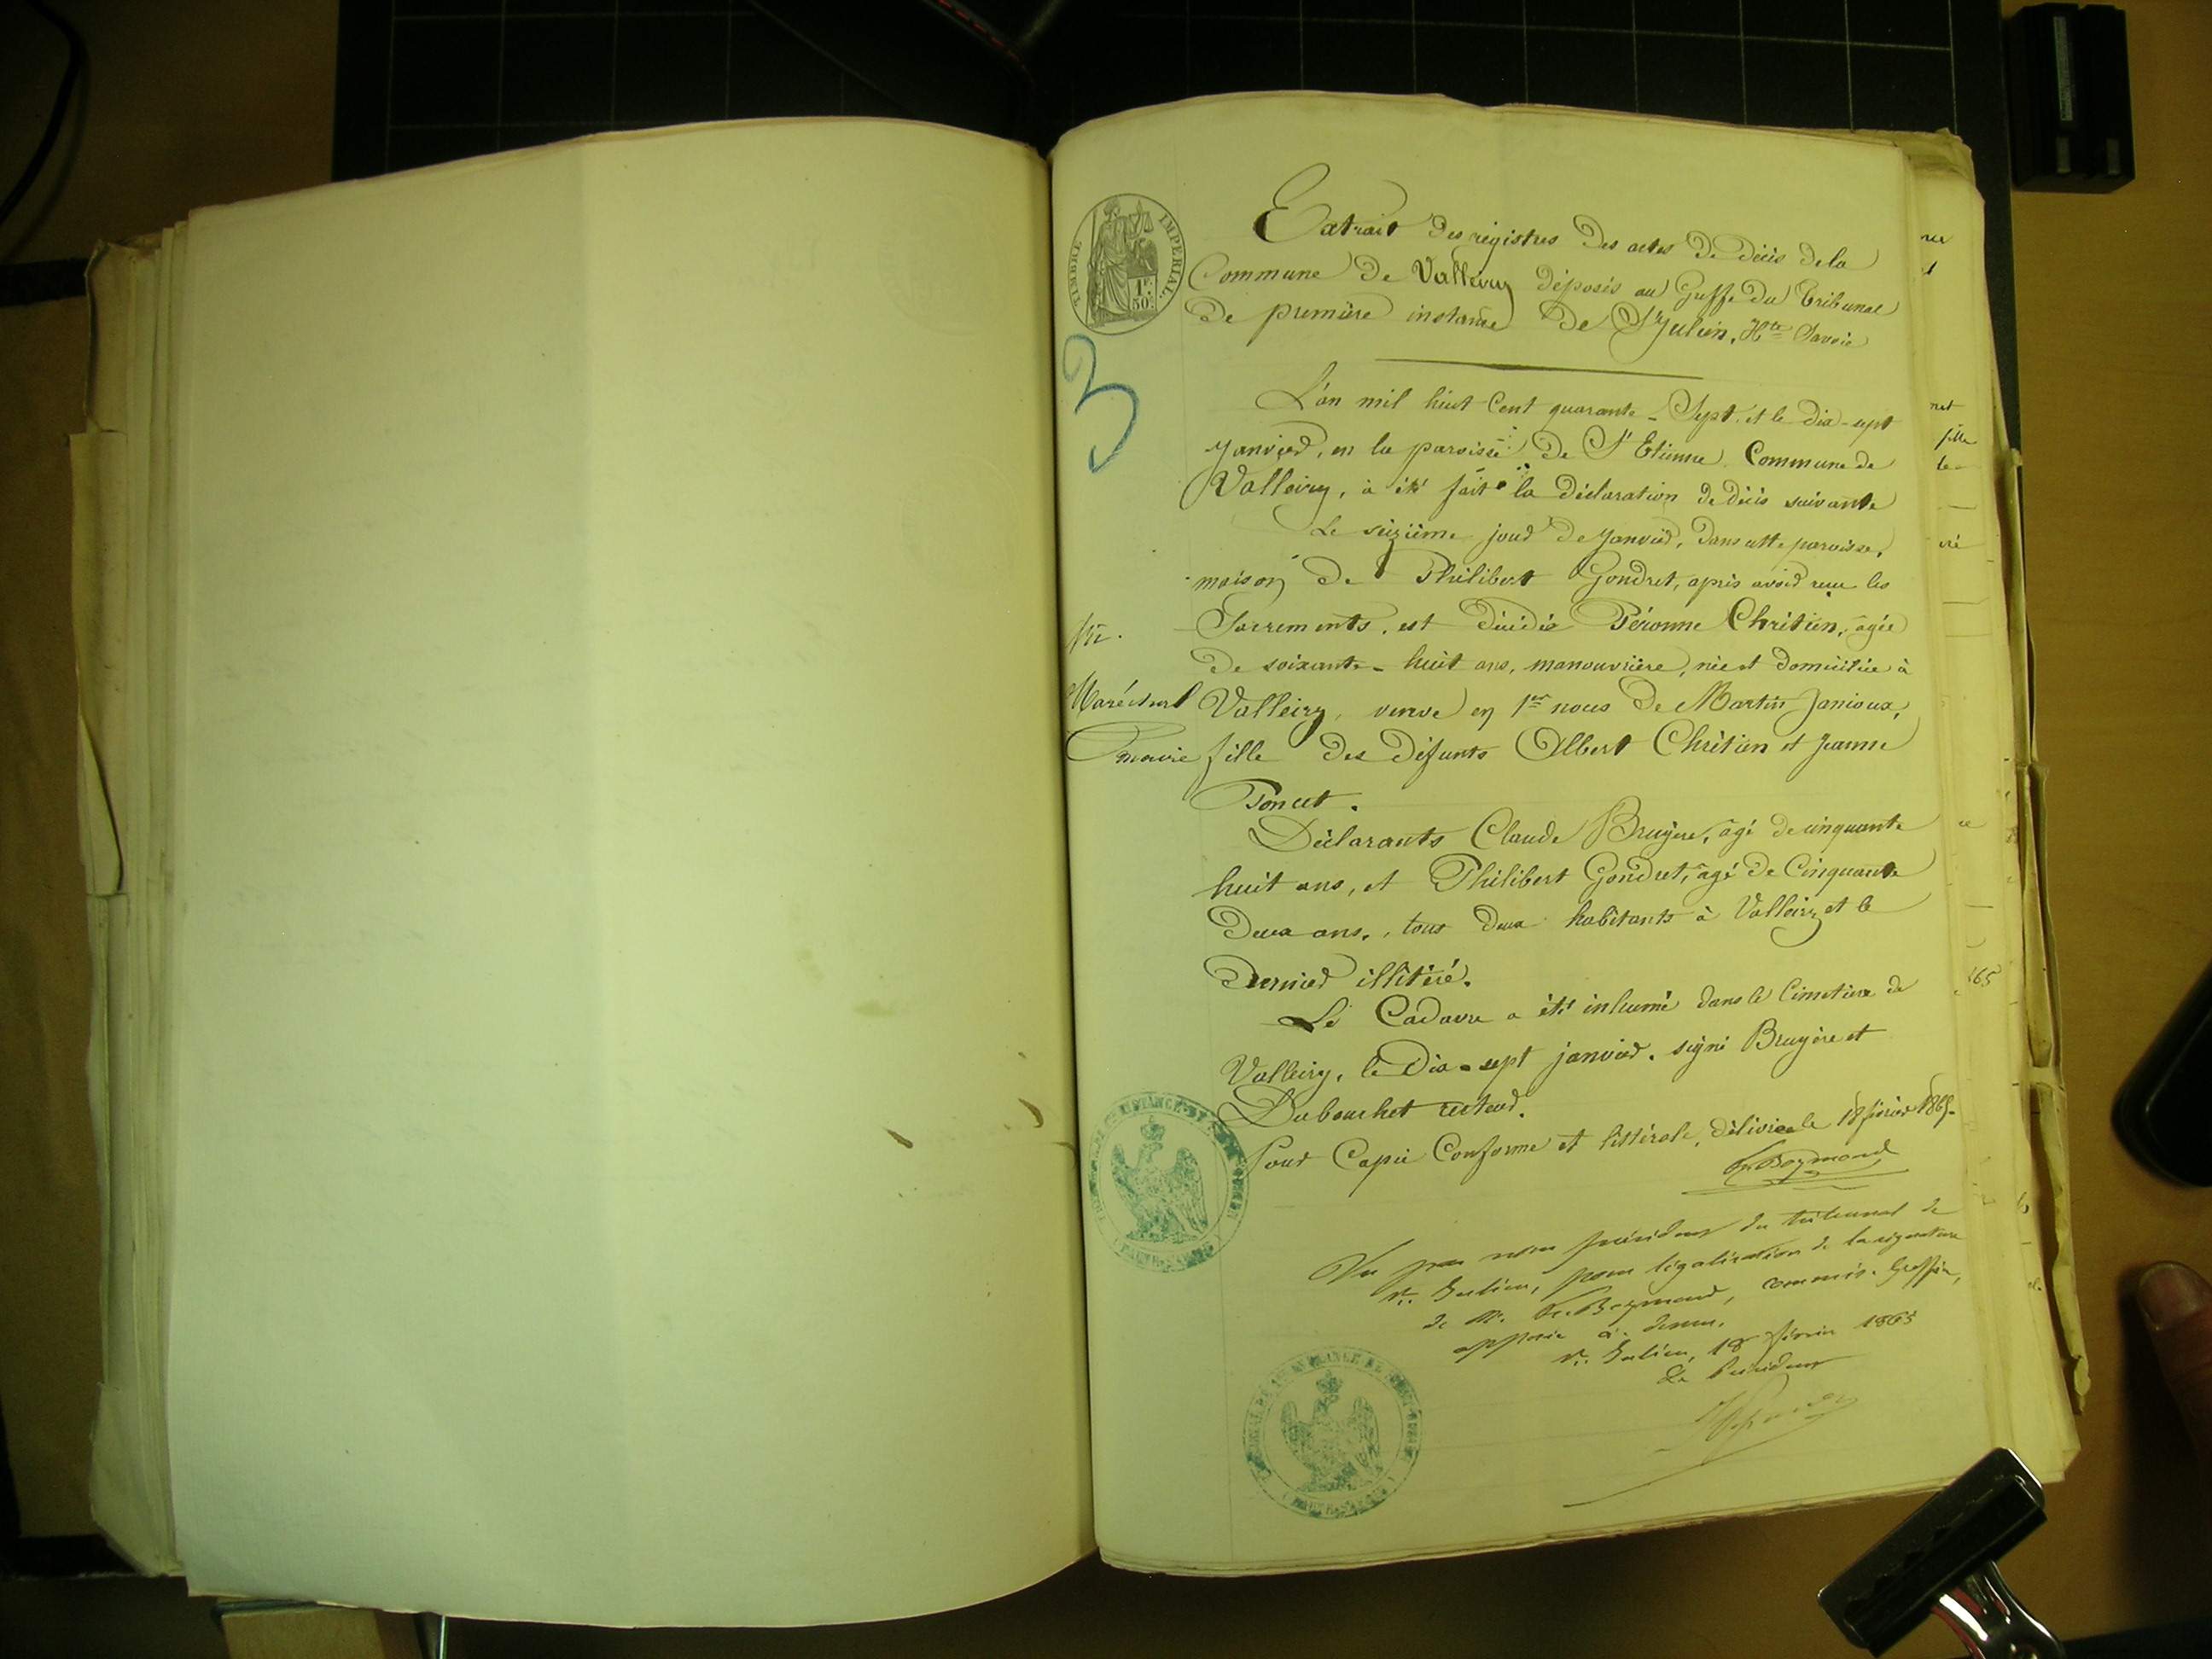 TIMBRE IMPERIAL
1F.
50C.
3
Extrait des régistres des actes de décès de la
Commune de Valleiry déposés au Greffe du Tribunal
de première instance de St Julien, Hte Savoie
L'an mil huit cent quarante-Sept, et le dix-sept
janvier, en la paroisse de St Etienne Commune de
Valleiry, à été fait la déclaration de décès suivante
Le seizième jour de janvier, dans cette paroisse,
maison de Philibert Gondret, après avoir reçu les
Sacrements, est décédée Péronne Chrétien, âgée
de soixante-huit ans, manouvrière, née et domiciliée à
Valleiry, veuve en 1er noces de Martin Janioux,
fille des défunts Albert Chrétien et Jeanne
Poncet.
Maréchal
maire
Déclarants Claude Bruyère, âgé de cinquante
huit ans, et Philibert Gondret, âgé de Cinquante
Deux ans, tous deux habitants à Valleiry et le
Dernier illitéré.
Le Cadavre a été inhumé dans le Cimetière de
Valleiry, le Dix-sept janvier. signé Bruyère et
Dubouchet recteur.
Pour Copie Conforme et littérale, délivrée le 18 février 1865.
Fr. Boymond
Vu par nous président du tribunal de
St. Julien, pour légalisation de la signature
de M. Fr. Boymond, commis-Greffier,
apposée ci-dessus.
St. Julien, 18 février 1865
Le Président